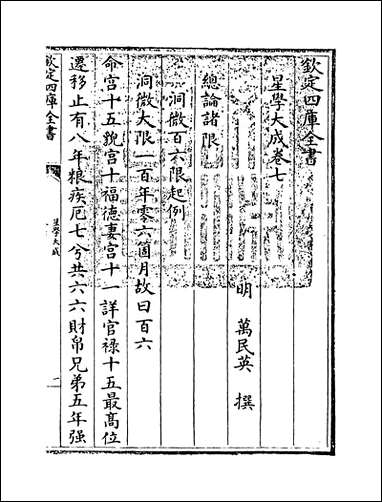 欽定四庫全書
星學大成卷七
明 萬民英 撰
總論諸限
洞微百六限起例
洞微大限一百年零六箇月故曰百六
命宮十五貌宮十福德妻宮十一詳官禄十五最高位
遷移止有八年粮疾厄七兮共六六財帛兄弟五年强
欽定四庫全書
星學大成
二